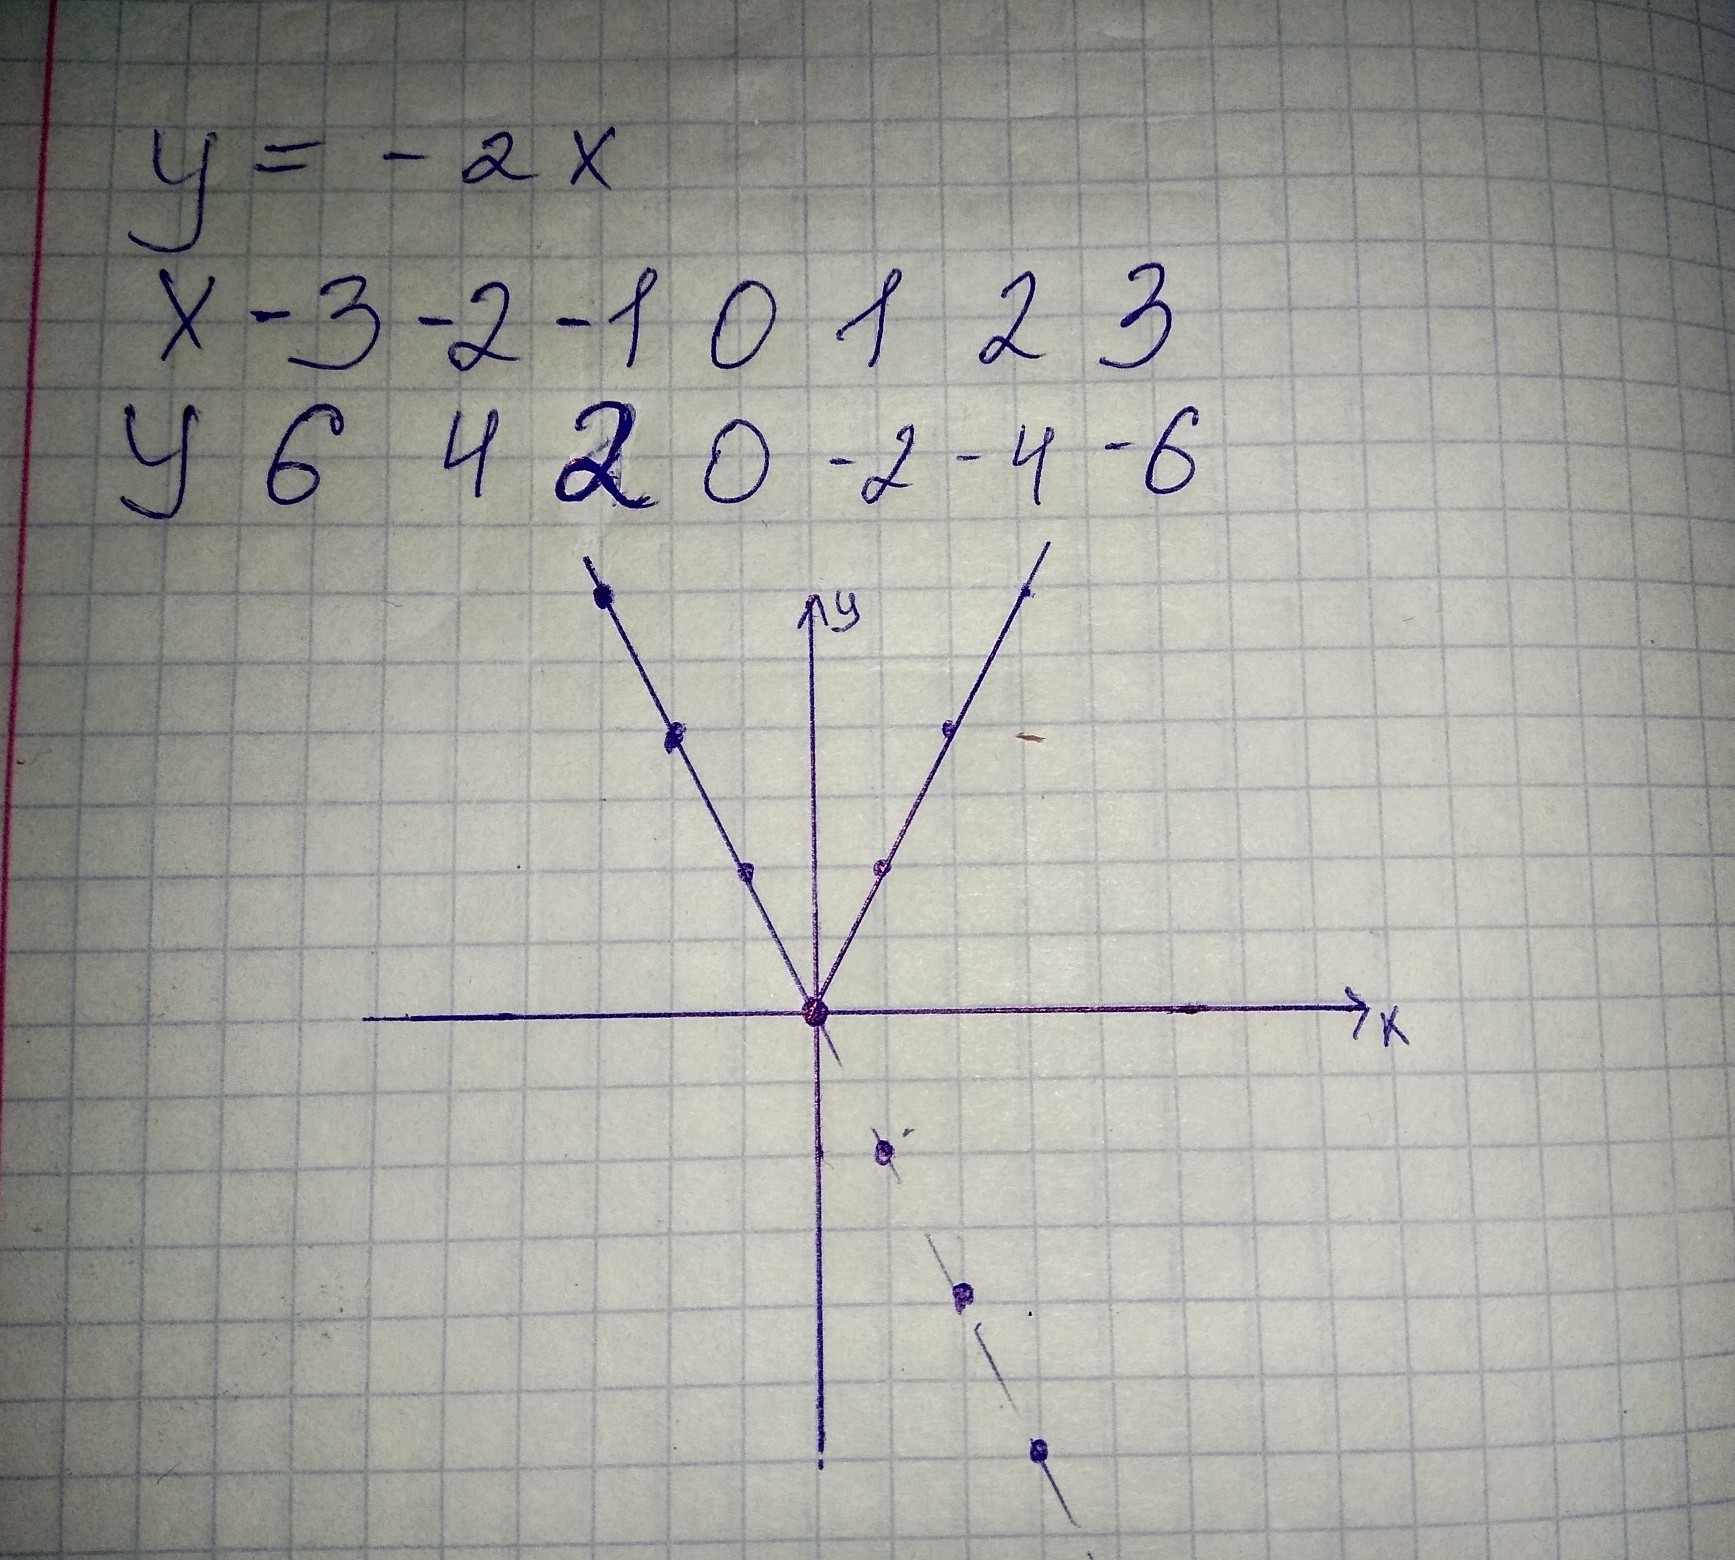 y = - 2 x
x -3 -2 -1 0 1 2 3
y 6 4 2 0 -2 -4 -6
y
x